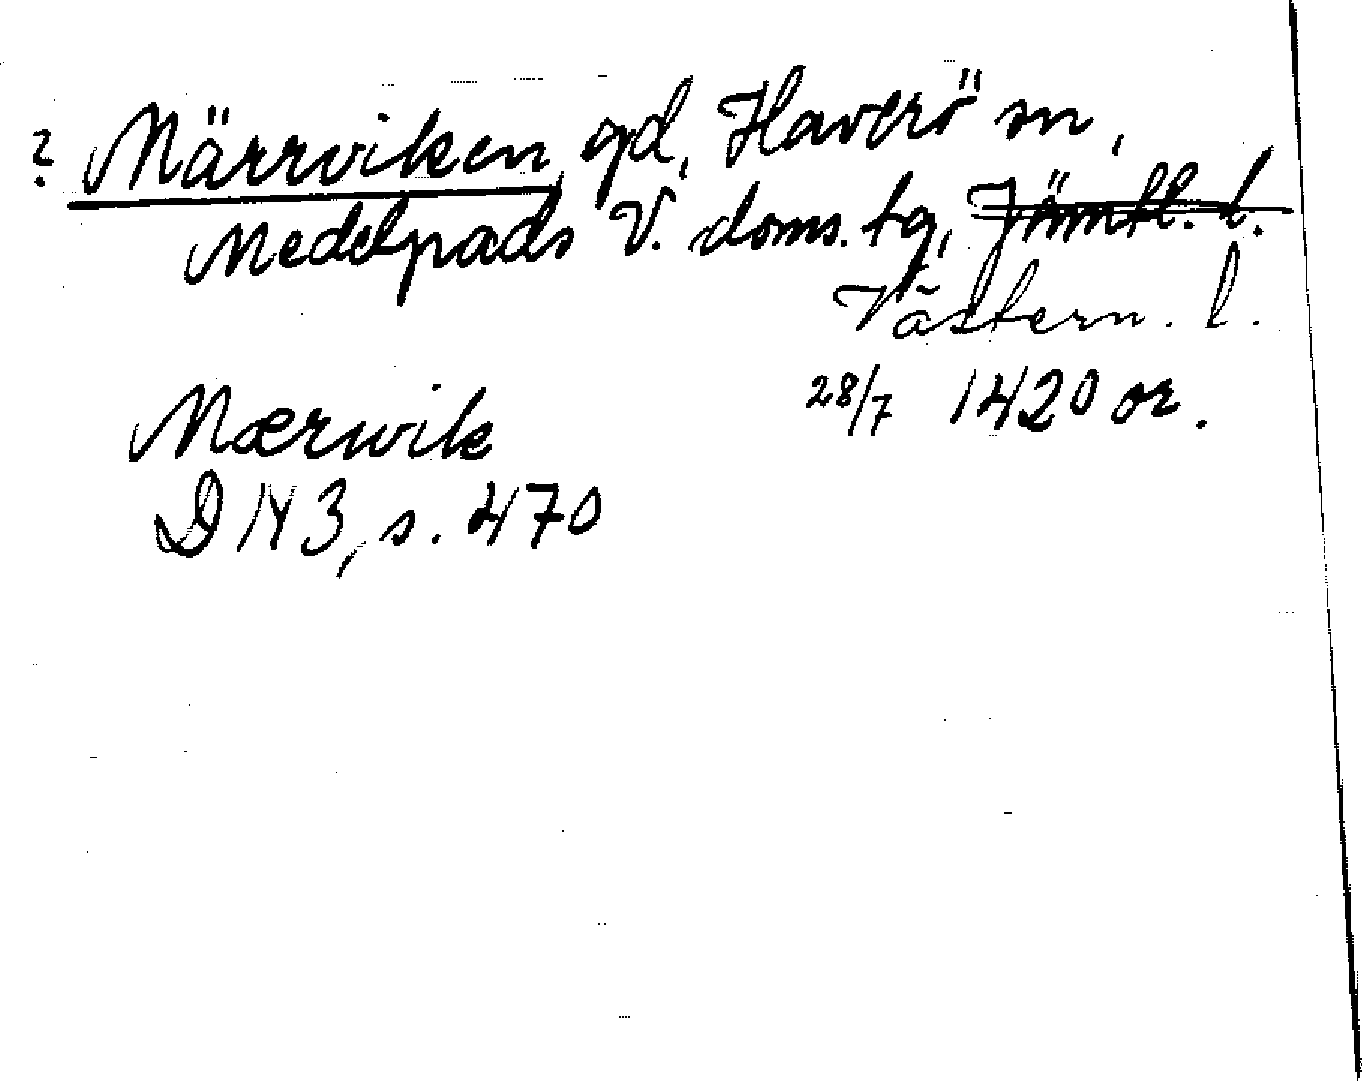 ? Märrviken, gd, Haverö sn,
Medelpads V. doms. tg, Jämtl. l.
Västern. l.
Mærwik 28/7 1420 or.
DN 3, s. 470